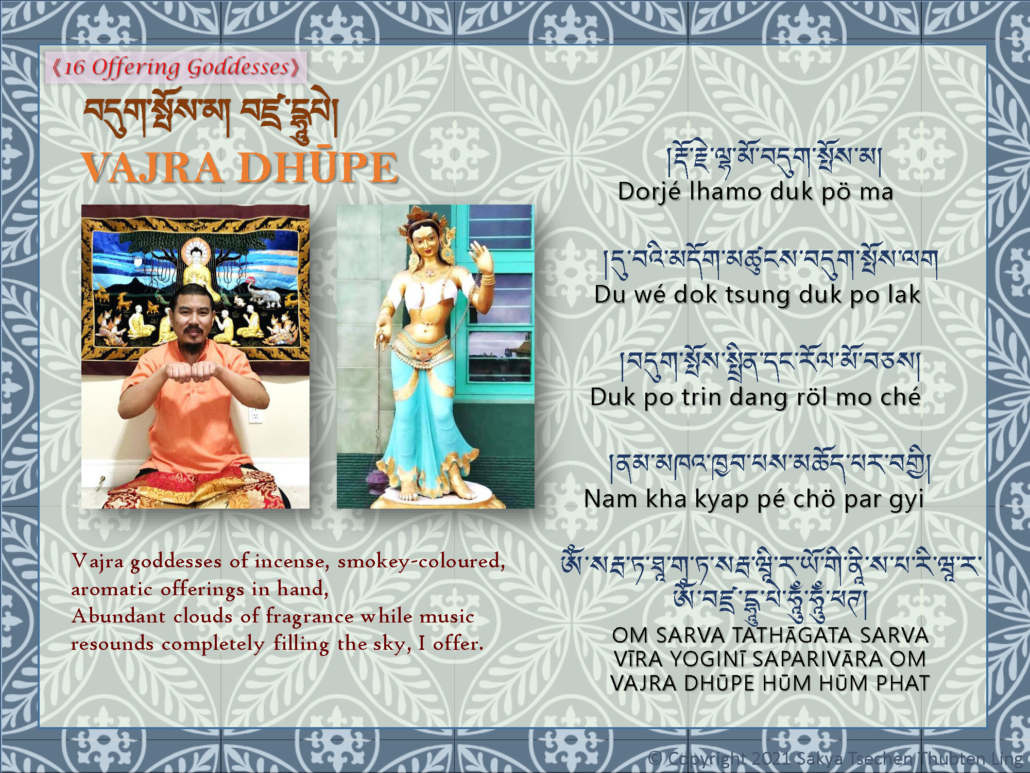 《16 Offering Goddesses》
བདུག་སྤོས་མ། བཛྲ་དྷཱུཔེ།
VAJRA DHŪPE
།རྡོ་རྗེ་ལྷ་མོ་བདུག་སྤོས་མ།
Dorjé lhamo duk pö ma
།དུ་བའི་མདོག་མཚུངས་བདུག་སྤོས་ལག
Du wé dok tsung duk po lak
།བདུག་སྤོས་སྤྲིན་དང་རོལ་མོ་བཅས།
Duk po trin dang röl mo ché
།ནམ་མཁའ་ཁྱབ་པས་མཆོད་པར་བགྱི།
Nam kha kyap pé chö par gyi
ཨོཾ་སརྦ་ཏ་ཐཱ་གཱ་ཏ་སརྦ་ཝཱི་ར་ཡོ་གི་ནཱི་ས་པ་རི་ཝཱ་ར་
ཨོཾ་བཛྲ་དྷཱུ་པེ་ཧཱུྃ་ཧཱུྃ་ཕཊ།
OM SARVA TATHĀGATA SARVA
VĪRA YOGINĪ SAPARIVĀRA OM
VAJRA DHŪPE HŪM HŪM PHAT
Vajra goddesses of incense, smokey-coloured,
aromatic offerings in hand,
Abundant clouds of fragrance while music
resounds completely filling the sky, I offer.
© Copyright 2021 Sakya Tsechen Thubten Ling